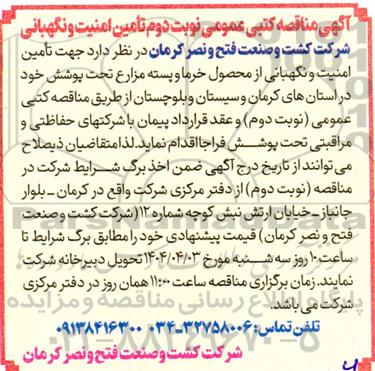 آگهی مناقصه کتبی عمومی نوبت دوم تأمین امنیت و نگهبانی
شرکت کشت و صنعت فتح و نصر کرمان در نظر دارد جهت تأمین
امنیت و نگهبانی از محصول خرما و پسته مزارع تحت پوشش خود
در استان های کرمان و سیستان و بلوچستان از طریق مناقصه کتبی
عمومی (نوبت دوم) و عقد قرارداد پیمان با شرکتهای حفاظتی و
مراقبتی تحت پوشش فراجا اقدام نماید. لذا متقاضیان ذیصلاح
می توانند از تاریخ درج آگهی ضمن اخذ برگ شرایط شرکت در
مناقصه (نوبت دوم) از دفتر مرکزی شرکت واقع در کرمان - بلوار
جانباز - خیابان ارتش نبش کوچه شماره ۱۲ (شرکت کشت و صنعت
فتح و نصر کرمان) قیمت پیشنهادی خود را مطابق برگ شرایط تا
ساعت ۱۰ روز سه شنبه مورخ ۱۴۰۴/۰۴/۰۳ تحویل دبیرخانه شرکت
نمایند. زمان برگزاری مناقصه ساعت ۱۱:۰۰ همان روز در دفتر مرکزی
شرکت می باشد.
تلفن تماس: ۳۲۷۵۸۰۰۶-۰۳۴ ۰۹۱۳۸۴۱۶۳۰۰
شرکت کشت و صنعت فتح و نصر کرمان